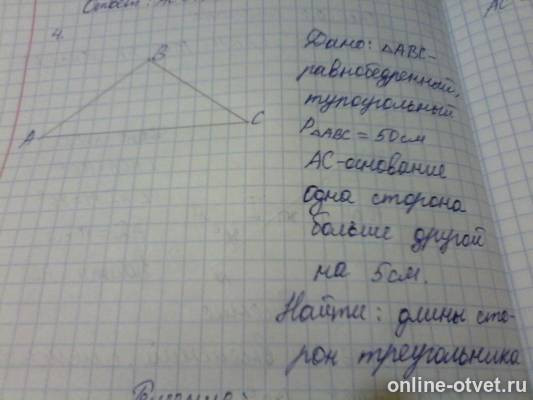 Ответ:
AC
4.
B
A
C
Дано: △ABC-
равнобедренный,
тупоугольный
P△ABC = 50см
AC-основание
одна сторона
больше другой
на 5см.
Найти: длины сто-
рон треугольника
online-otvet.ru